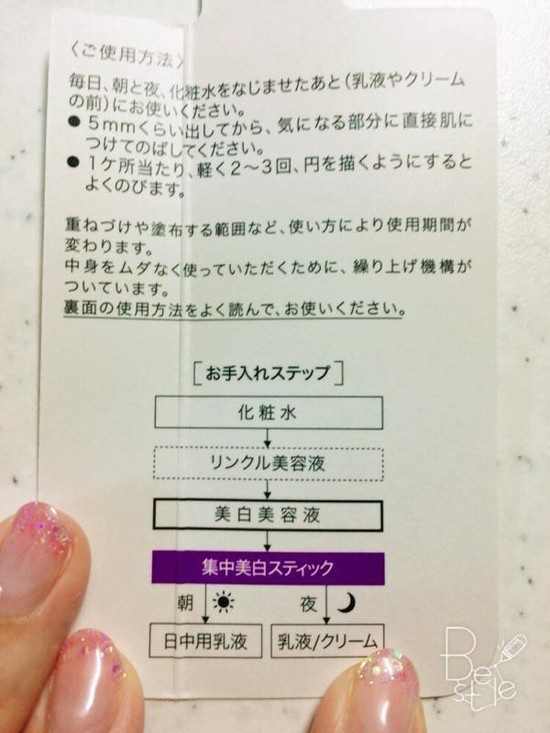 〈ご使用方法〉
毎日、朝と夜、化粧水をなじませたあと(乳液やクリーム
の前)にお使いください。
● 5mmくらい出してから、気になる部分に直接肌に
つけてのばしてください。
● 1ケ所当たり、軽く2〜3回、円を描くようにすると
よくのびます。
重ねづけや塗布する範囲など、使い方により使用期間が
変わります。
中身をムダなく使っていただくために、繰り上げ機構が
ついています。
裏面の使用方法をよく読んで、お使いください。
[お手入れステップ]
化粧水
リンクル美容液
美白美容液
集中美白スティック
朝 夜
日中用乳液 乳液/クリーム
Be style